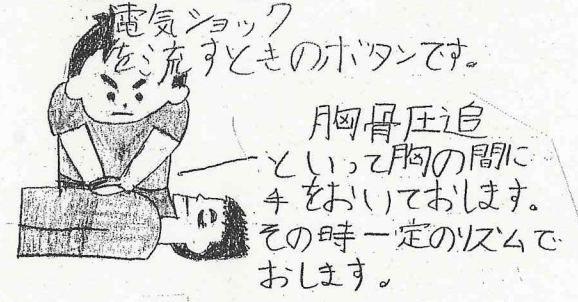 電気ショック
を流すときのボタンです。
胸骨圧迫
といって胸の間に
手をおいておします。
その時一定のリズムで
おします。